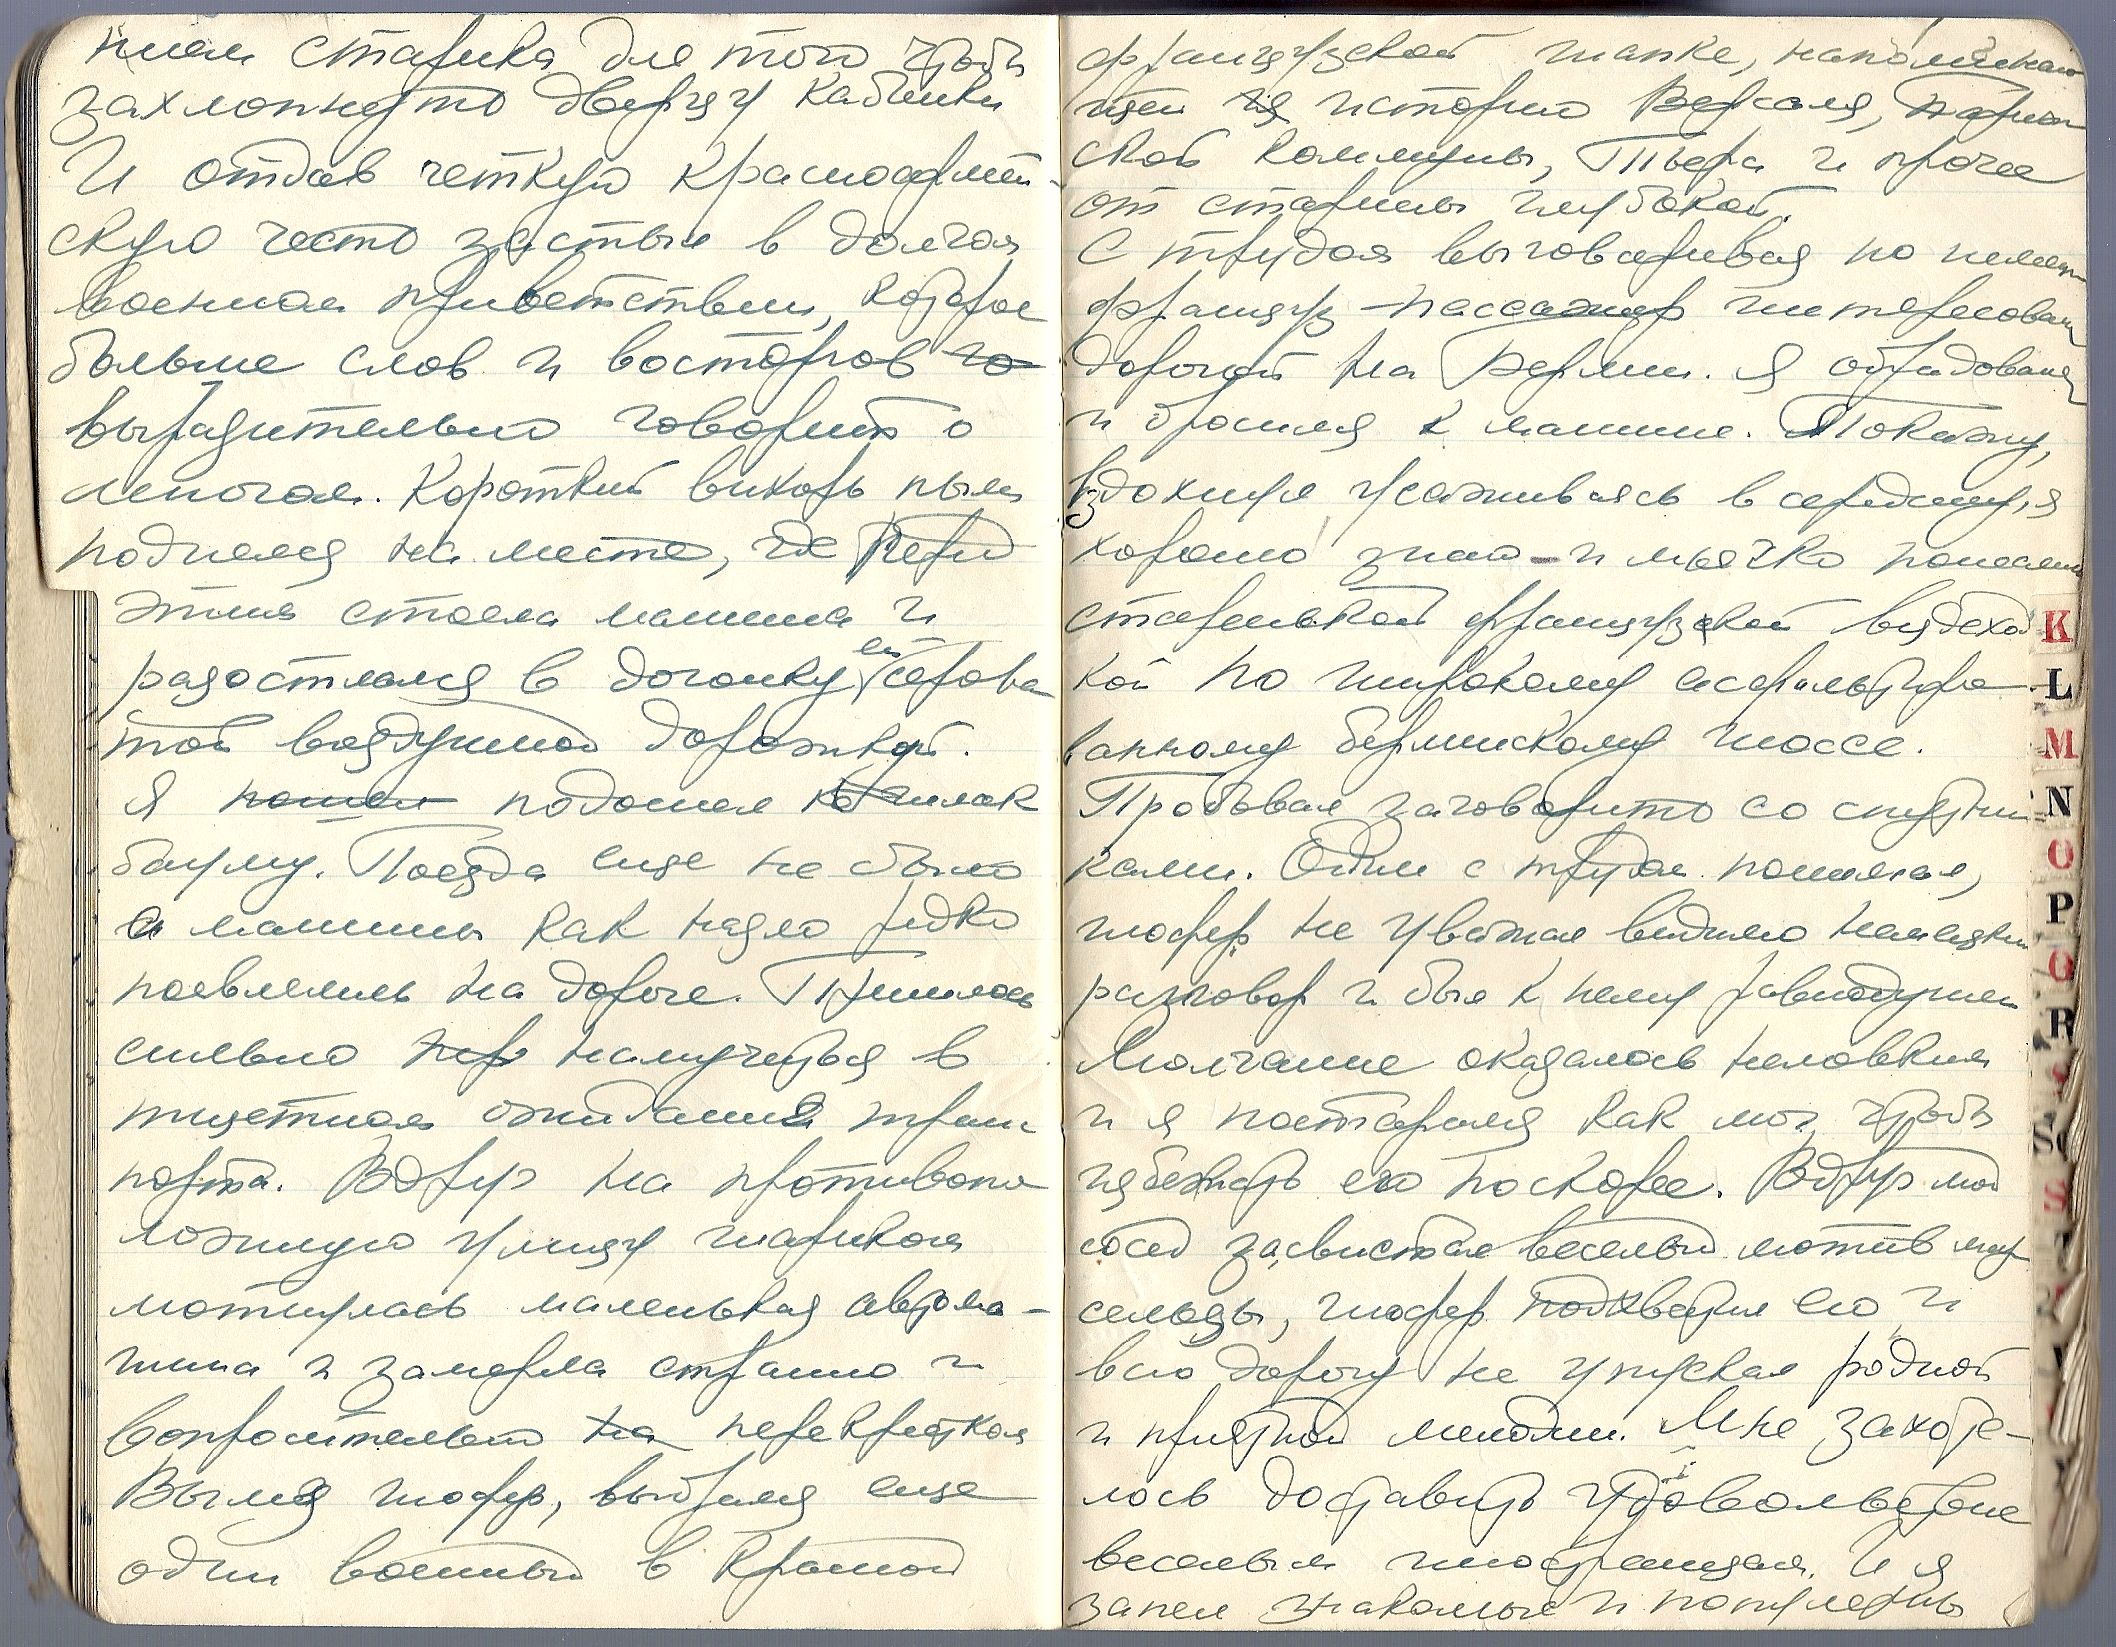 нием старика для того чтобы
захлопнуть дверцу кабинки
И отдав четкую красноармей-
скую честь застыл в долгом
военном приветствии, которое
больше слов и восторгов го
выразительно говорит о
многом. Короткий вихорь пыли
поднялся на месте, где перед
этим стояла машина и
разостлался в догонку ей серова
той воздушной дорожкой.
Я пошел подошел к шлак
бауму. Поезда еще не было
а машины как назло редко
появлялись на дороге. Пришлось
сильно пер намучиться в
тщетном ожидании транс
порта. Вдруг на противопо
ложную улицу шариком
мотнулась маленькая автома-
шина и замерла странно и
вопросительно на перекрестком
Вылез шофер, выбрался еще
один военный в красной
французской шапке, напоминаю
щей из историю Версаля, париж
ской коммуны, Тьера и прочее
от старины глубокой.
С трудом выговаривая по немец
француз пассажир интересовался
дорогой на Берлин. Я обрадовался
и бросился к машине. Покажу,
вздохнул усаживаясь в середину, я
хорошо знаю - и мы гко понеслись
старенькой французской вездеход
кой по широкому асфальтиро-
ванному берлинскому шоссе.
Пробовал заговорить со спутни-
ками. Один с трудом понимал,
шофер не уважал видимо немецкий
разговор и был к нему равнодушен
Молчание оказалось неловким
и я постарался как мог, чтобы
избежать его поскорее. Вдруг мой
сосед засвистал веселый мотив мар
сельезы, шофер подхватил его и
всю дорогу не упускал родной
и приятной мелодии. Мне захоте-
лось доставить удовольствие
веселым иностранцам. И я
запел знакомые и популярны
K
L
M
N
O
P
Q
R